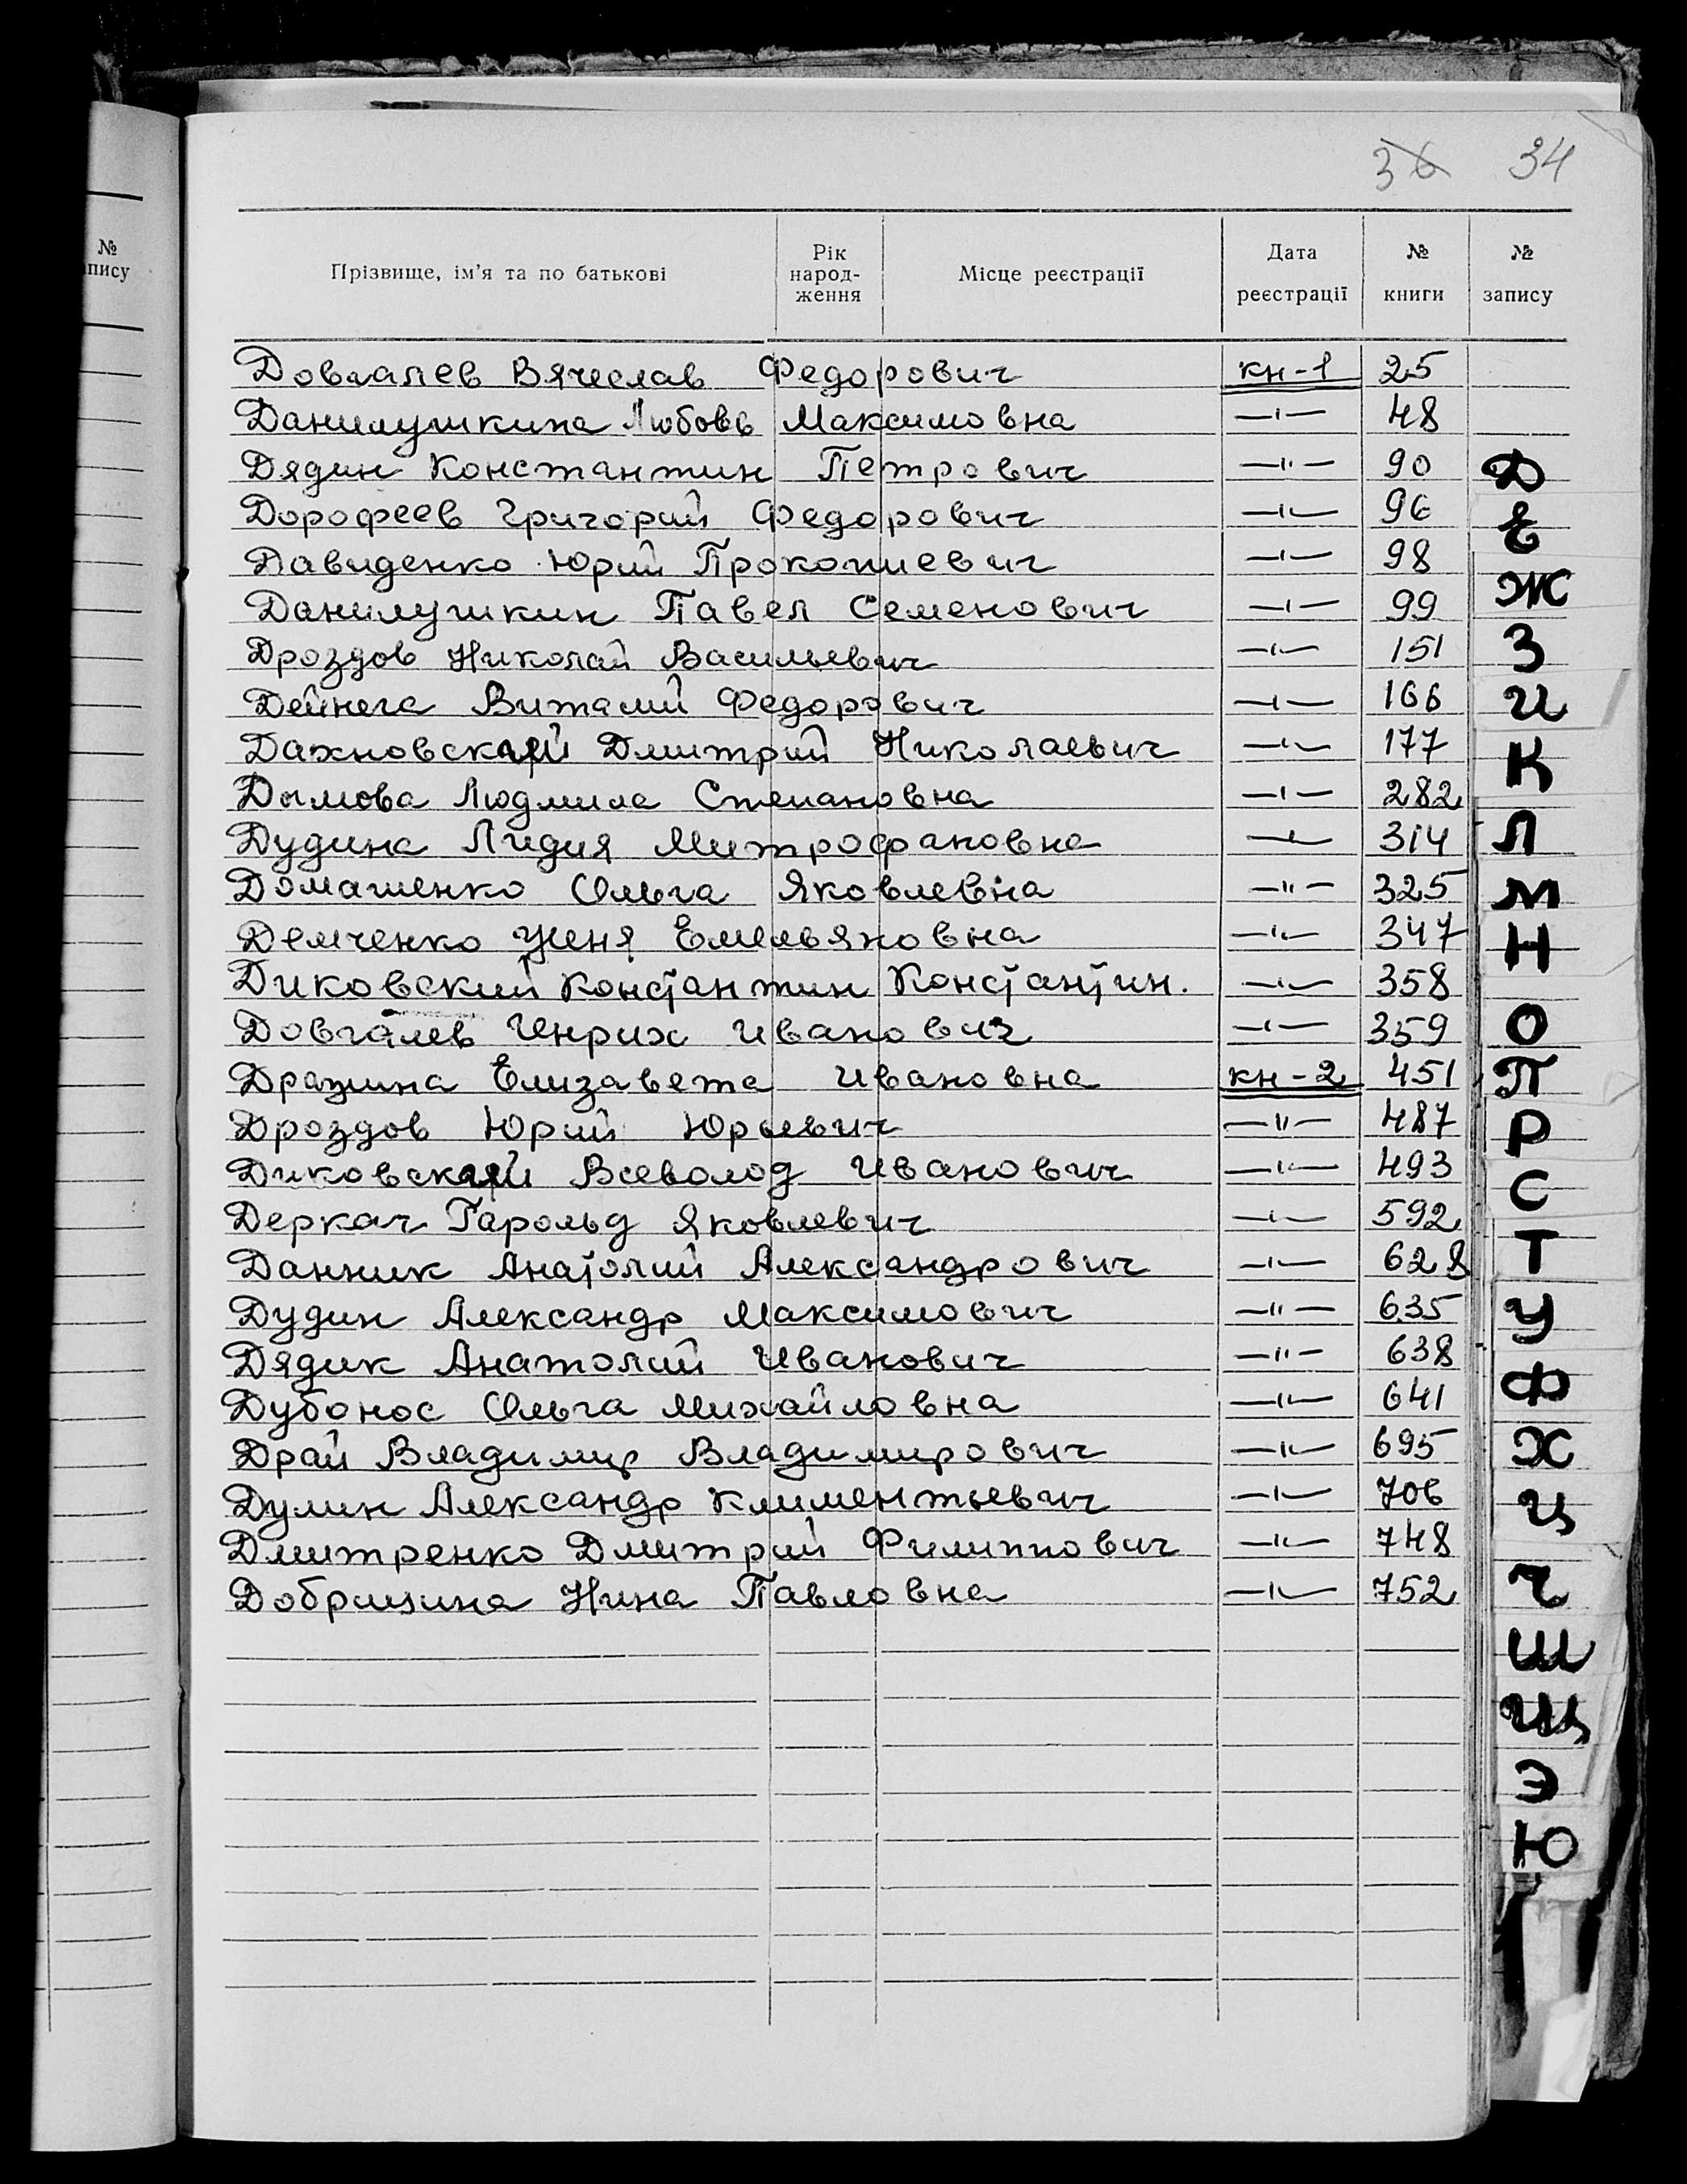 36 34
№
запису
Прізвище, ім'я та по батькові Рік народження Місце реєстрації Дата реєстрації № книги № запису
Довгалев Вячеслав Федорович кн-1 25
Данилушкина Любовь Максимовна —"— 48
Дядин Константин Петрович —"— 90
Дорофеев Григорий Федорович —"— 96
Давиденко Юрий Прокопиевич —"— 98
Данилушкин Павел Семенович —"— 99
Дроздов Николай Васильевич —"— 151
Дейнега Виталий Федорович —"— 166
Дахновский Дмитрий Николаевич —"— 177
Дымова Людмила Степановна —"— 282
Дудина Лидия Митрофановна —"— 314
Домашенко Ольга Яковлевна —"— 325
Демченко Ксеня Емельяновна —"— 347
Диковский Константин Константин. —"— 358
Довгалев Генрих Иванович —"— 359
Елизавета Ивановна кн-2 451
Дроздов Юрий Юрьевич —"— 487
Диковский Всеволод Иванович —"— 493
Деркач Гарольд Яковлевич —"— 592
Данник Анатолий Александрович —"— 628
Дудин Александр Максимович —"— 635
Дядик Анатолий Иванович —"— 638
Дубонос Ольга Михайловна —"— 641
Драй Владимир Владимирович —"— 695
Дулин Александр Климентьевич —"— 706
Дмитренко Дмитрий Филиппович —"— 748
Нина Павловна —"— 752
Д
Е
Ж
З
И
К
Л
М
Н
О
П
Р
С
Т
У
Ф
Х
Ц
Ч
Ш
Щ
Э
Ю